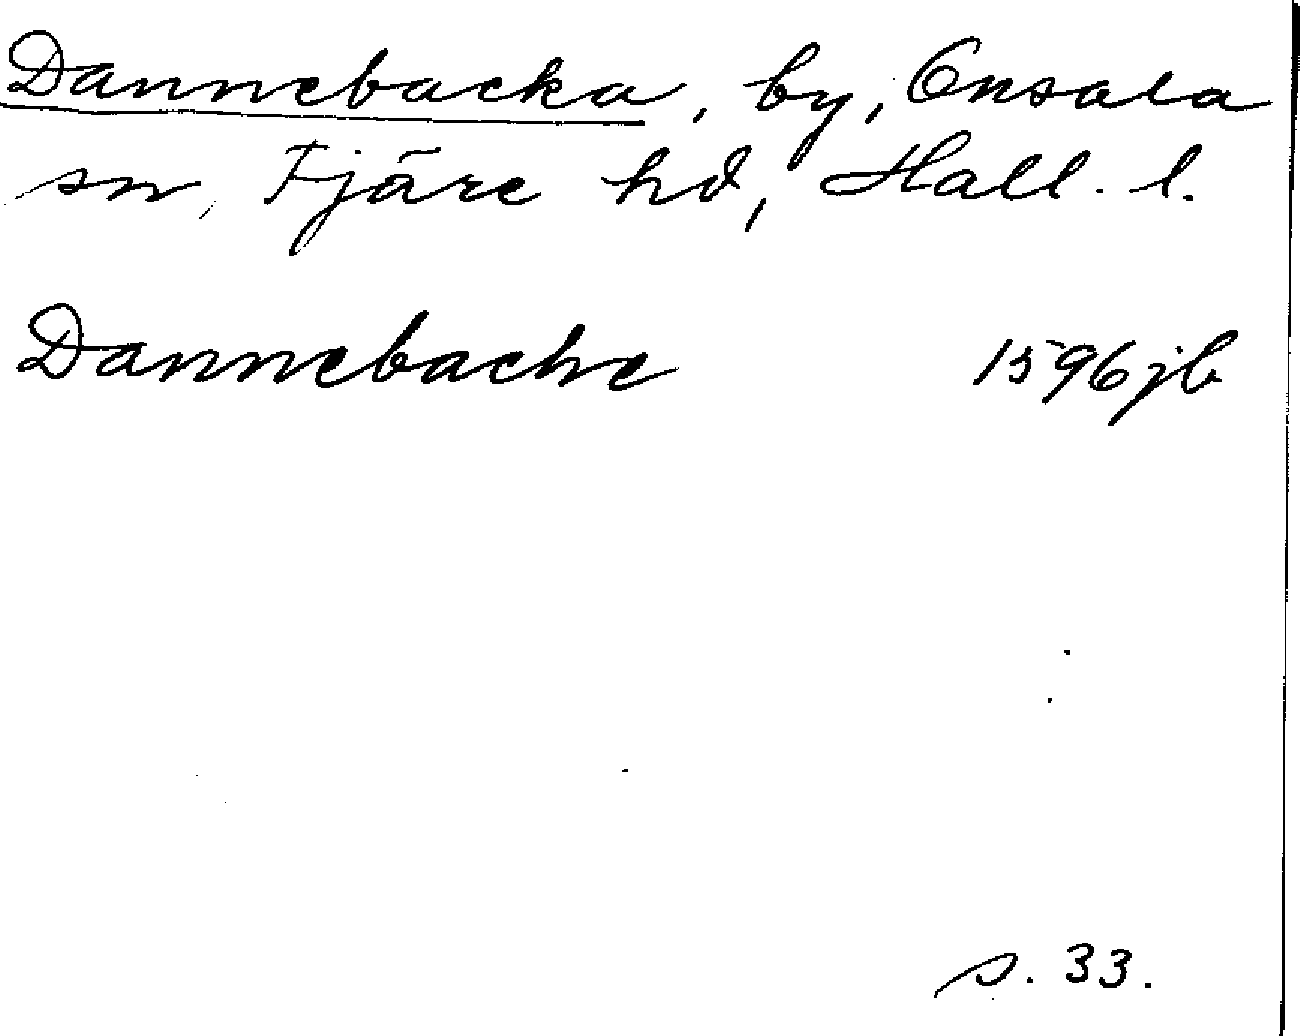 Dannebacka, by, Onsala
sn, Fjäre hd, Hall. l.
Dannebache 1596 jb
s. 33.